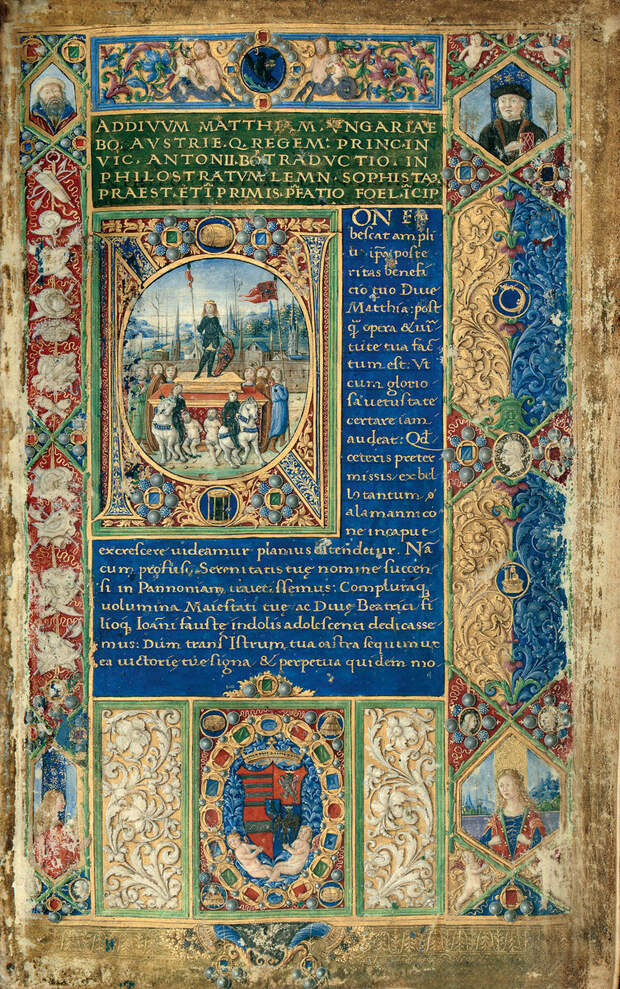 AD DIVVM MATTHI M. VNGARIAE
BO. AVSTRIE. Q. REGEM: PRINC. IN
VIC. ANTONII. TRADVCTIO. IN
PHILOSTRATVM. LEMN. SOPHISTA
PRAEST. ETI PRIMIS. PFATIO FOEL. ICIP
ON E
bescat ampli
ti ipa poste
ritas benefi
cio tuo Diue
Matthia: post
q̃ opera & uir
tute tua fac
tum est: Vt
cum glorio
sa uetustate
certare iam
audeat: Qd
ceteris preter
missis ex bi
bl tantum
alamannico
ne in caput
excrescere uideamur planius ostendetur. Nã
cum profusis Serenitatis tuę nomine succen
si in Pannoniam ssemus: Compluraq
uolumina Maiestati tuę ac Diuę Beatrici fi
lioq, Ioãni fauste indolis adolescenti dedicasse
mus: Dum trans Istrum tua castra sequimur
ea uictorie tue signa & perpetua quidem mo